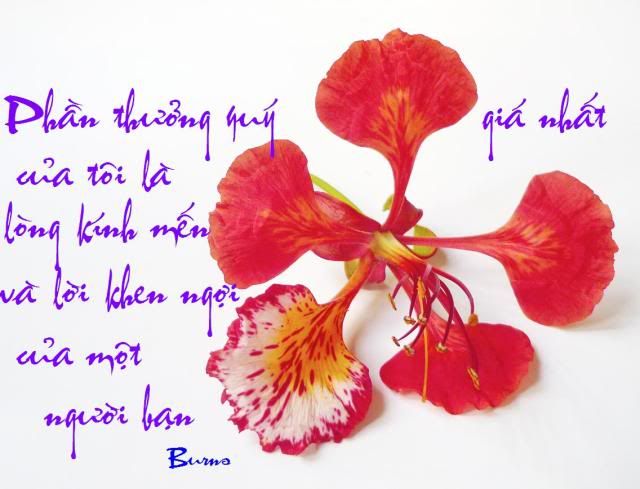 Phần thưởng quý giá nhất
của tôi là
lòng kính mến
và lời khen ngợi
của một
người bạn
Burns